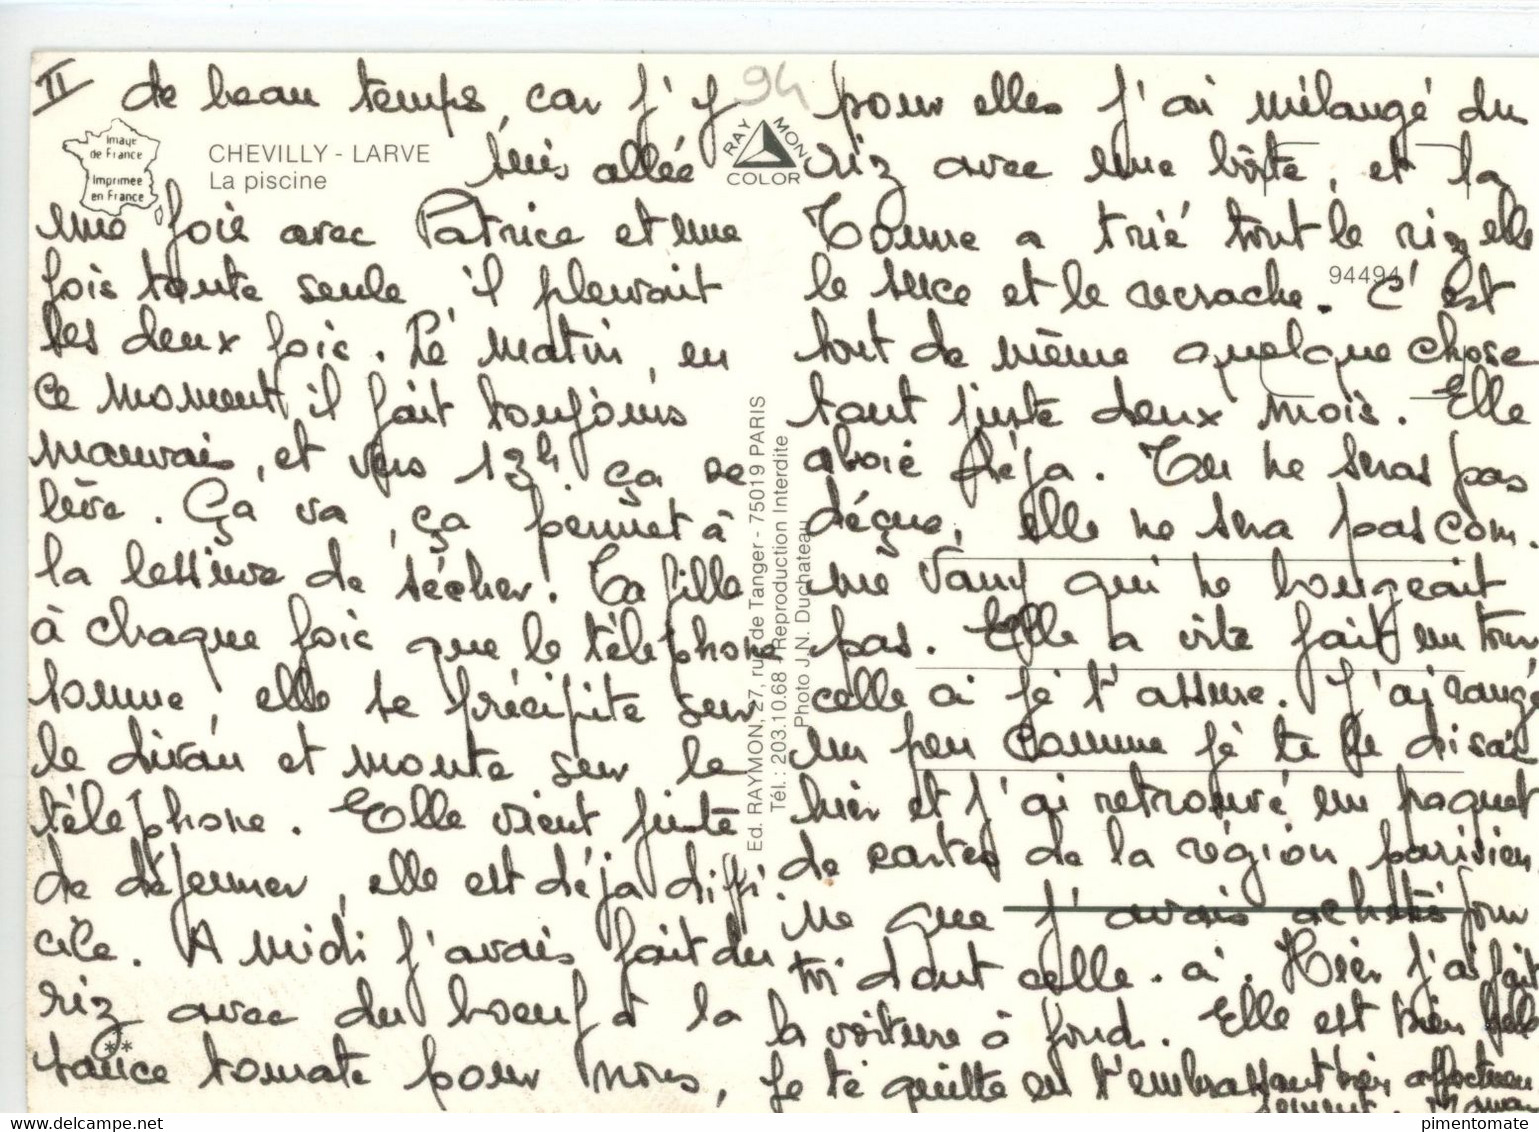 II de beau temps, car j'y
suis allée
une fois avec Patrice et une
fois toute seule, il pleuvait
les deux fois. Le matin, en
ce moment, il fait toujours
mauvais, et vers 13h ça se
lève. Ça va, ça permet à
la lessive de sécher. Ta fille
à chaque fois que le téléphone
sonne, elle se précipite sur
le divan et monte sur le
téléphone. Elle vient juste
de déjeuner, elle est déjà diffi
cile. A midi j'avais fait du
riz avec du boeuf à la
sauce tomate pour nous,
pour elles j'ai mélangé du
riz avec une boîte, et la
a trié tout le riz, elle
le suce et le recrache. C'est
tout de même quelque chose
tout juste deux mois. Elle
aboie déjà. Tu ne seras pas
déçue, elle ne sera pas com.
me qui ne bougeait
pas. Elle a vite fait un tour
celle ci je t'assure. J'ai rangé
un peu comme je te le disais
hier et j'ai retrouvé un paquet
de cartes de la région parisien.
ne que j'avais achetés pour
toi dont celle-ci. Hier j'ai fait
la voiture à fond. Elle est bien belle
Je te quitte en t'embrassant bien affectueu
sement. Maman
94
Image
de France
Imprimée
en France
CHEVILLY - LARVE
La piscine
RAYMOND
COLOR
94494
Ed. RAYMON, 27, rue de Tanger - 75019 PARIS
Tél.: 203.10.68 / Reproduction Interdite
Photo J.N. Duchateau
**
www.delcampe.net
pimentomate